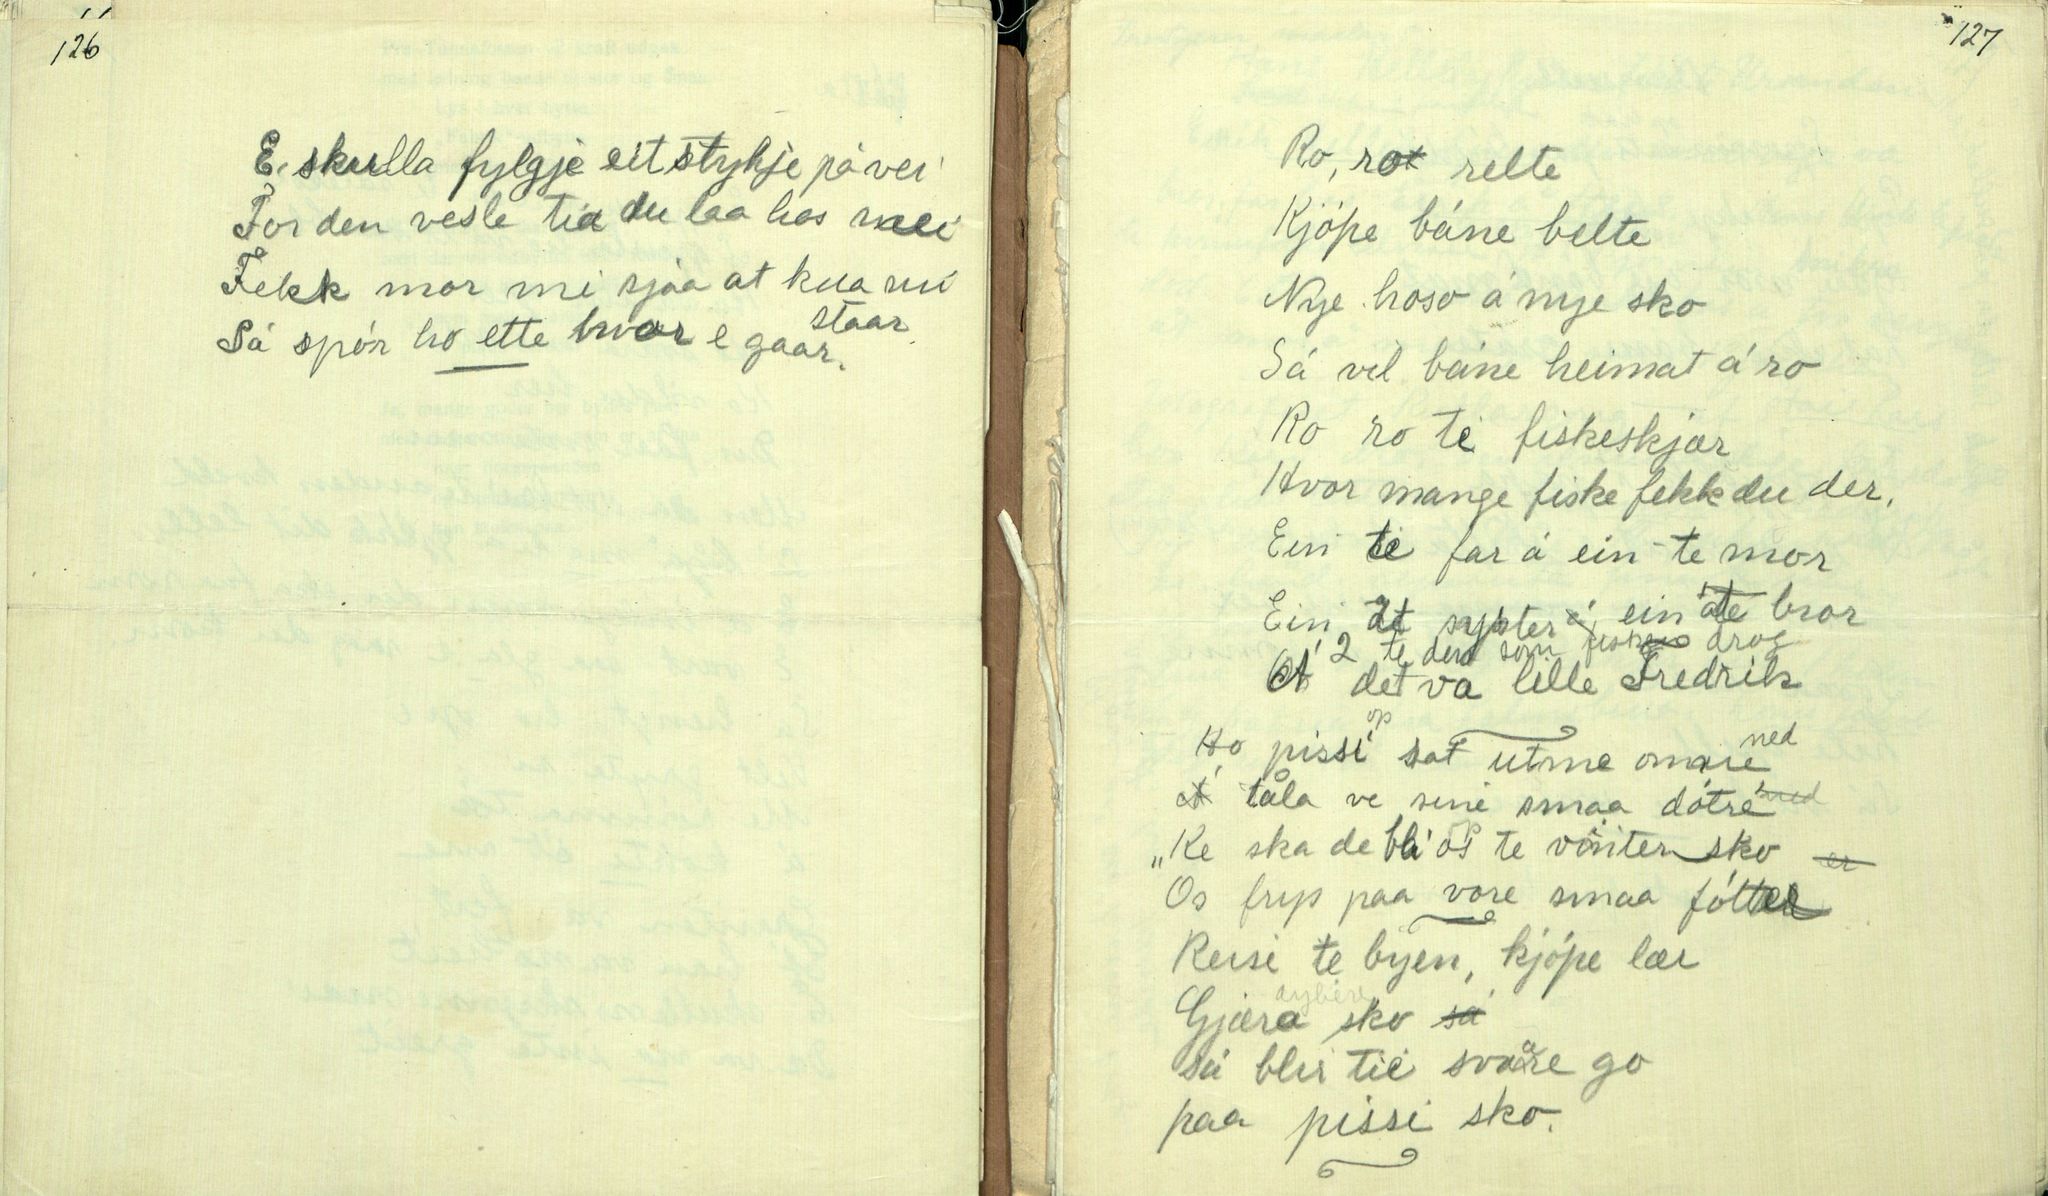 126
E skulla fylgje eit stykje på vei
For den vesle tia du laa hos mei
Fekk mor mi sjaa at kua mi
staar
Så spór ho ette hvor e gaar.
127
Ro, ro relte
Kjópe båne belte
Nye hoso å nye sko
Så vil båne heimat å ro
Ro ro te fiskeskjær
Hvor mange fiske fekk du der.
Ein te far å ein te mor
Ein te syster å ein te bror
Å 2 te den som drog
det va lille Fredrik
op
Ho pissi sat utme omne ned
Å tåla ve sine smaa dótre
"Ke ska de bli os te vinter sko er
Os frys paa vore smaa fótter
Reise te byen, kjópe lær
Gjæra sko så
så blir tie svære go
paa pissi sko.